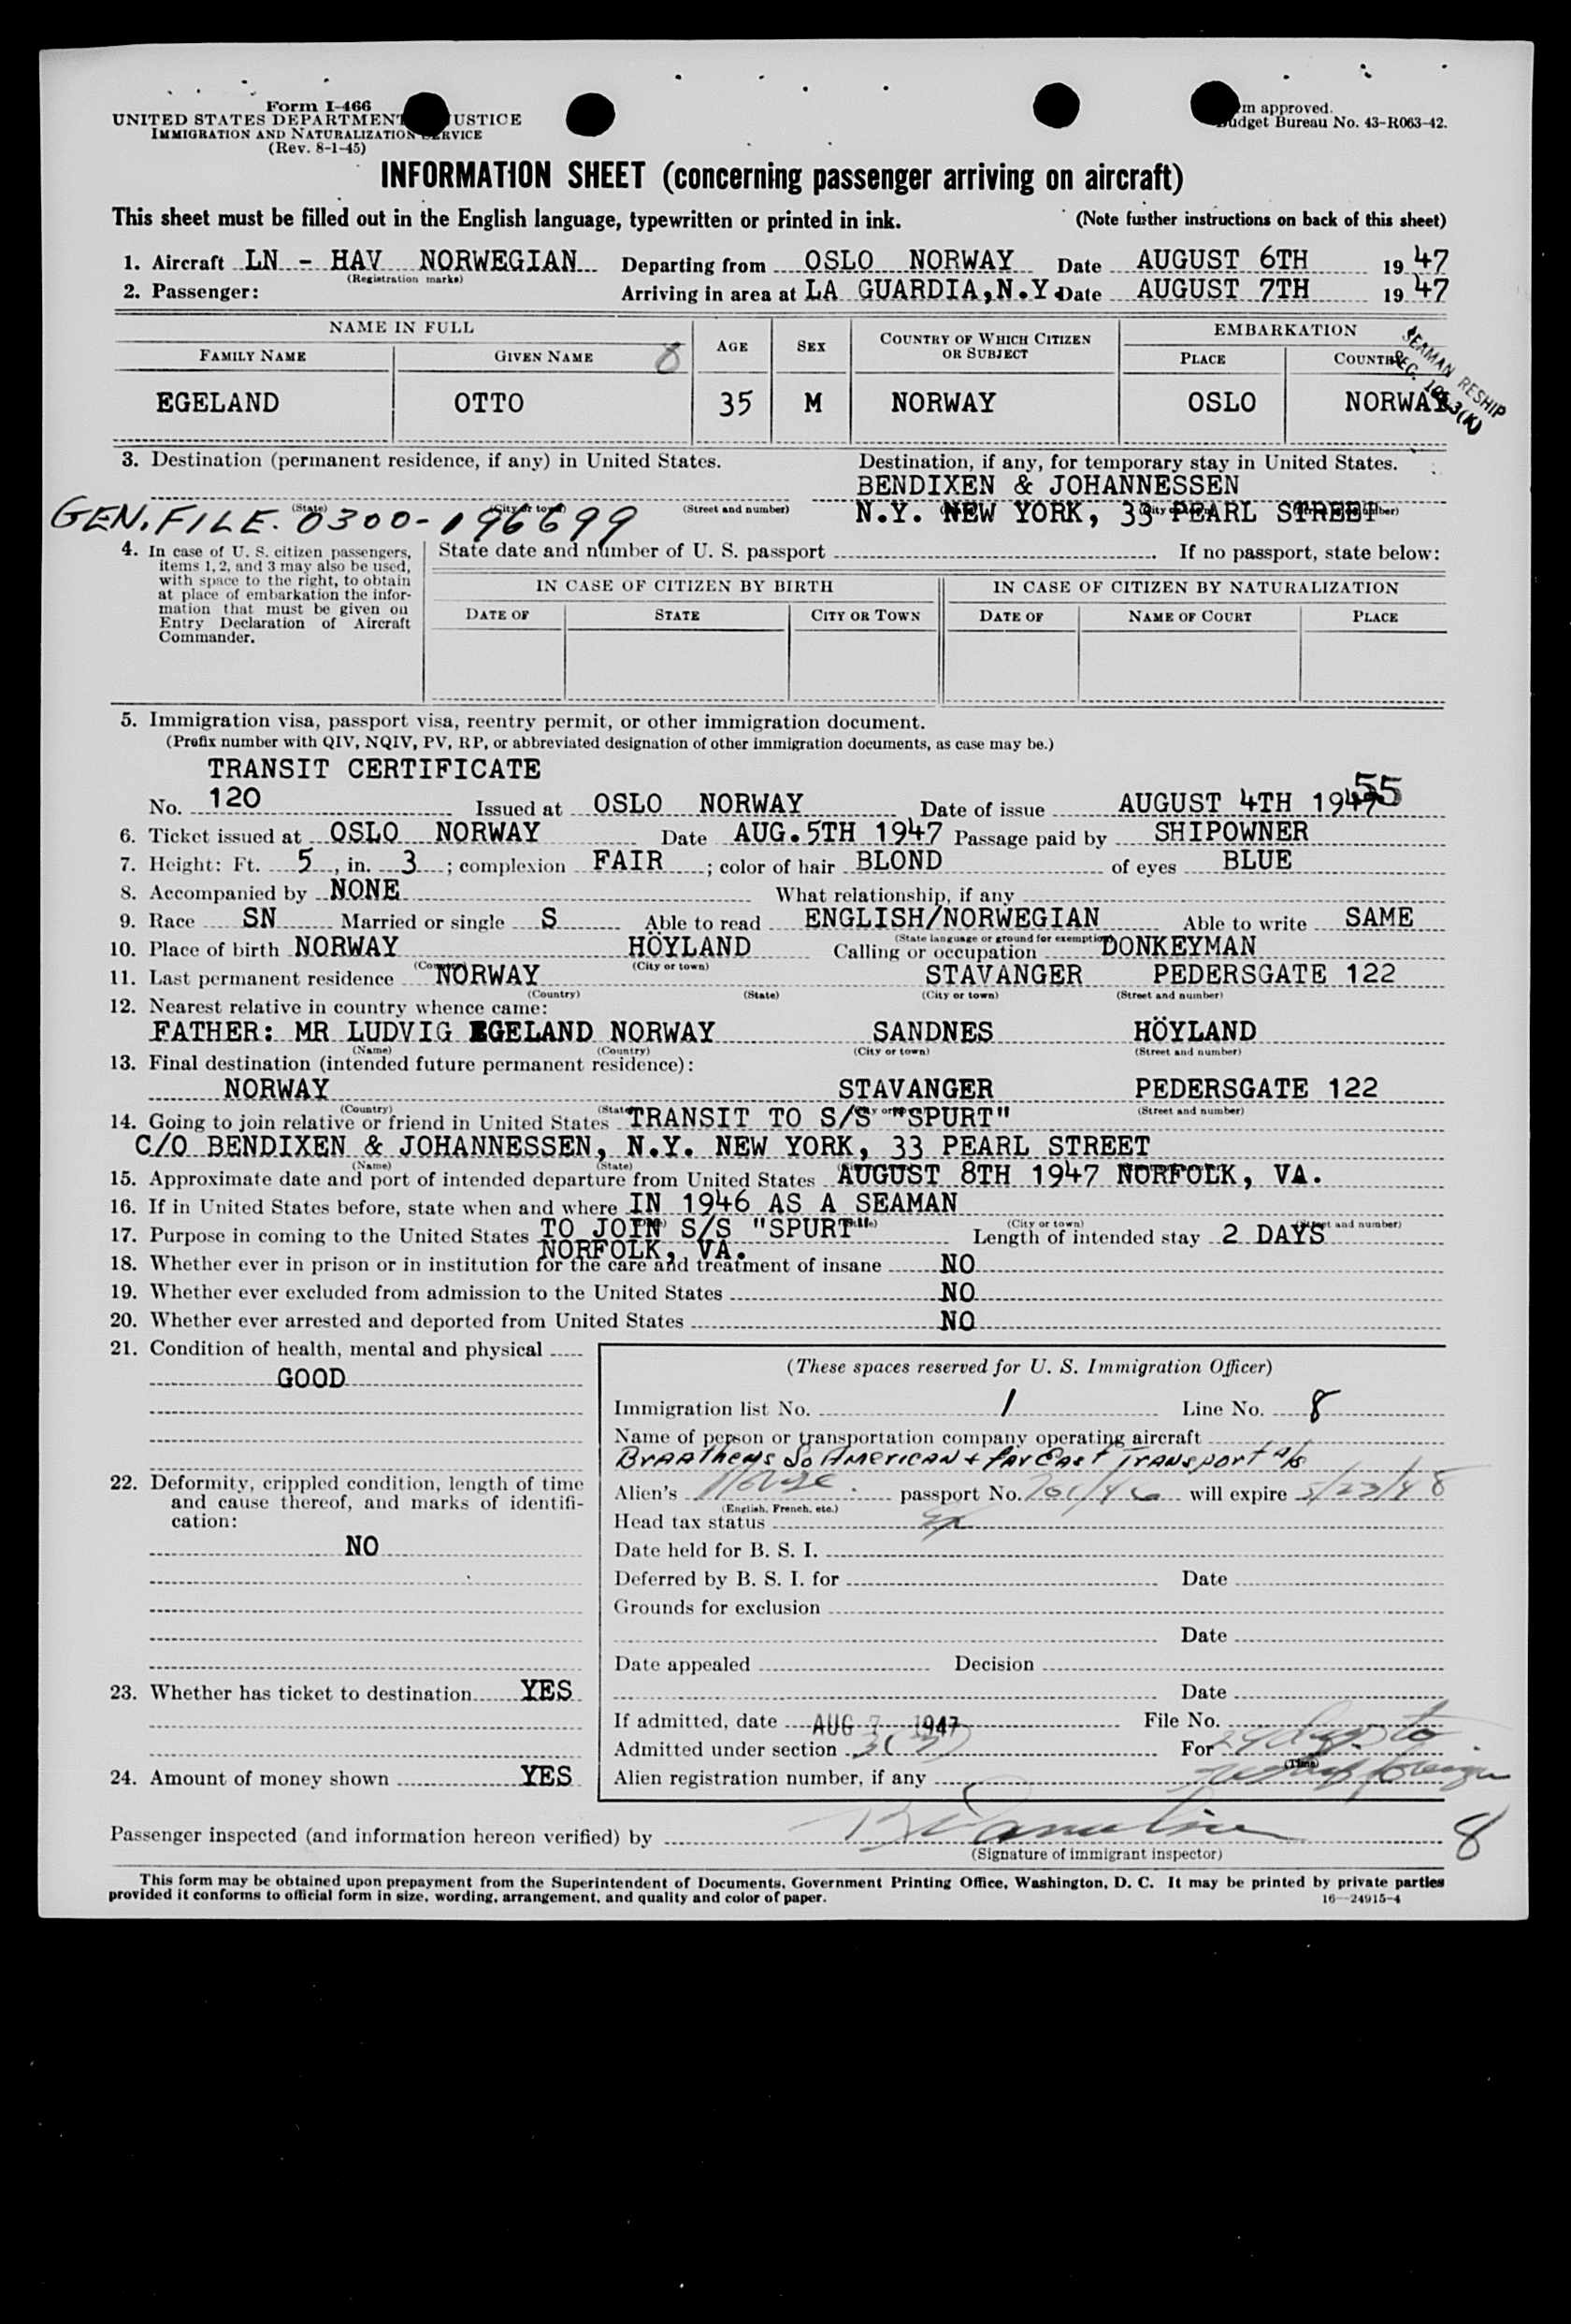 Form I-466
UNITED STATES DEPARTMENT USTICE
IMMIGRATION AND NATURALIZATION SERVICE
(Rev. 8-1-45)
m approved.
Budget Bureau No. 43-R063-42.
INFORMATION SHEET (concerning passenger arriving on aircraft)
This sheet must be filled out in the English language, typewritten or printed in ink. (Note further instructions on back of this sheet)
1. Aircraft LN - HAV NORWEGIAN Departing from OSLO NORWAY Date AUGUST 6TH 1947
(Registration marks)
2. Passenger: Arriving in area at LA GUARDIA, N.Y. Date AUGUST 7TH 1947
NAME IN FULL AGE SEX COUNTRY OF WHICH CITIZEN OR SUBJECT EMBARKATION
FAMILY NAME GIVEN NAME 8 PLACE COUNTRY
SEAMAN RESHIP
EGELAND OTTO 35 M NORWAY OSLO NORWAY
3. Destination (permanent residence, if any) in United States. Destination, if any, for temporary stay in United States.
BENDIXEN & JOHANNESSEN
(State) (City or town) (Street and number) N.Y. NEW YORK, 33 PEARL STREET
GEN. FILE. 0300-196699
4. In case of U. S. citizen passengers, items 1, 2, and 3 may also be used, with space to the right, to obtain at place of embarkation the information that must be given on Entry Declaration of Aircraft Commander.
State date and number of U. S. passport . If no passport, state below:
IN CASE OF CITIZEN BY BIRTH IN CASE OF CITIZEN BY NATURALIZATION
DATE OF STATE CITY OR TOWN DATE OF NAME OF COURT PLACE
5. Immigration visa, passport visa, reentry permit, or other immigration document.
(Prefix number with QIV, NQIV, PV, RP, or abbreviated designation of other immigration documents, as case may be.)
TRANSIT CERTIFICATE
55
No. 120 Issued at OSLO NORWAY Date of issue AUGUST 4TH 1947
6. Ticket issued at OSLO NORWAY Date AUG. 5TH 1947 Passage paid by SHIPOWNER
7. Height: Ft. 5, in. 3; complexion FAIR; color of hair BLOND of eyes BLUE
8. Accompanied by NONE What relationship, if any
9. Race SN Married or single S Able to read ENGLISH/NORWEGIAN Able to write SAME
(State language or ground for exemption)
10. Place of birth NORWAY HÖYLAND Calling or occupation DONKEYMAN
(Country) (City or town)
11. Last permanent residence NORWAY STAVANGER PEDERSGATE 122
(Country) (State) (City or town) (Street and number)
12. Nearest relative in country whence came:
FATHER: MR LUDVIG EGELAND NORWAY SANDNES HÖYLAND
(Name) (Country) (City or town) (Street and number)
13. Final destination (intended future permanent residence):
NORWAY STAVANGER PEDERSGATE 122
(Country) (State) (City or town) (Street and number)
14. Going to join relative or friend in United States TRANSIT TO S/S "SPURT"
C/O BENDIXEN & JOHANNESSEN, N.Y. NEW YORK, 33 PEARL STREET
(Name) (State)
15. Approximate date and port of intended departure from United States AUGUST 8TH 1947 NORFOLK, VA.
16. If in United States before, state when and where IN 1946 AS A SEAMAN
(City or town) (Street and number)
17. Purpose in coming to the United States TO JOIN S/S "SPURT" Length of intended stay 2 DAYS
NORFOLK, VA.
18. Whether ever in prison or in institution for the care and treatment of insane NO
19. Whether ever excluded from admission to the United States NO
20. Whether ever arrested and deported from United States NO
21. Condition of health, mental and physical
GOOD
(These spaces reserved for U. S. Immigration Officer)
Immigration list No. 1 Line No. 8
Name of person or transportation company operating aircraft
Braathens So American & Far East Transport A/S
22. Deformity, crippled condition, length of time and cause thereof, and marks of identification:
NO
Alien's passport No. will expire 5/23/48
(English, French, etc.)
Head tax status
Date held for B. S. I.
Deferred by B. S. I. for Date
Grounds for exclusion
Date
Date appealed Decision
23. Whether has ticket to destination YES
Date
If admitted, date AUG 7 1947 File No.
Admitted under section For
(Time)
24. Amount of money shown YES
Alien registration number, if any
Passenger inspected (and information hereon verified) by 8
(Signature of immigrant inspector)
This form may be obtained upon prepayment from the Superintendent of Documents, Government Printing Office, Washington, D. C. It may be printed by private parties
provided it conforms to official form in size, wording, arrangement, and quality and color of paper. 16—24915-4